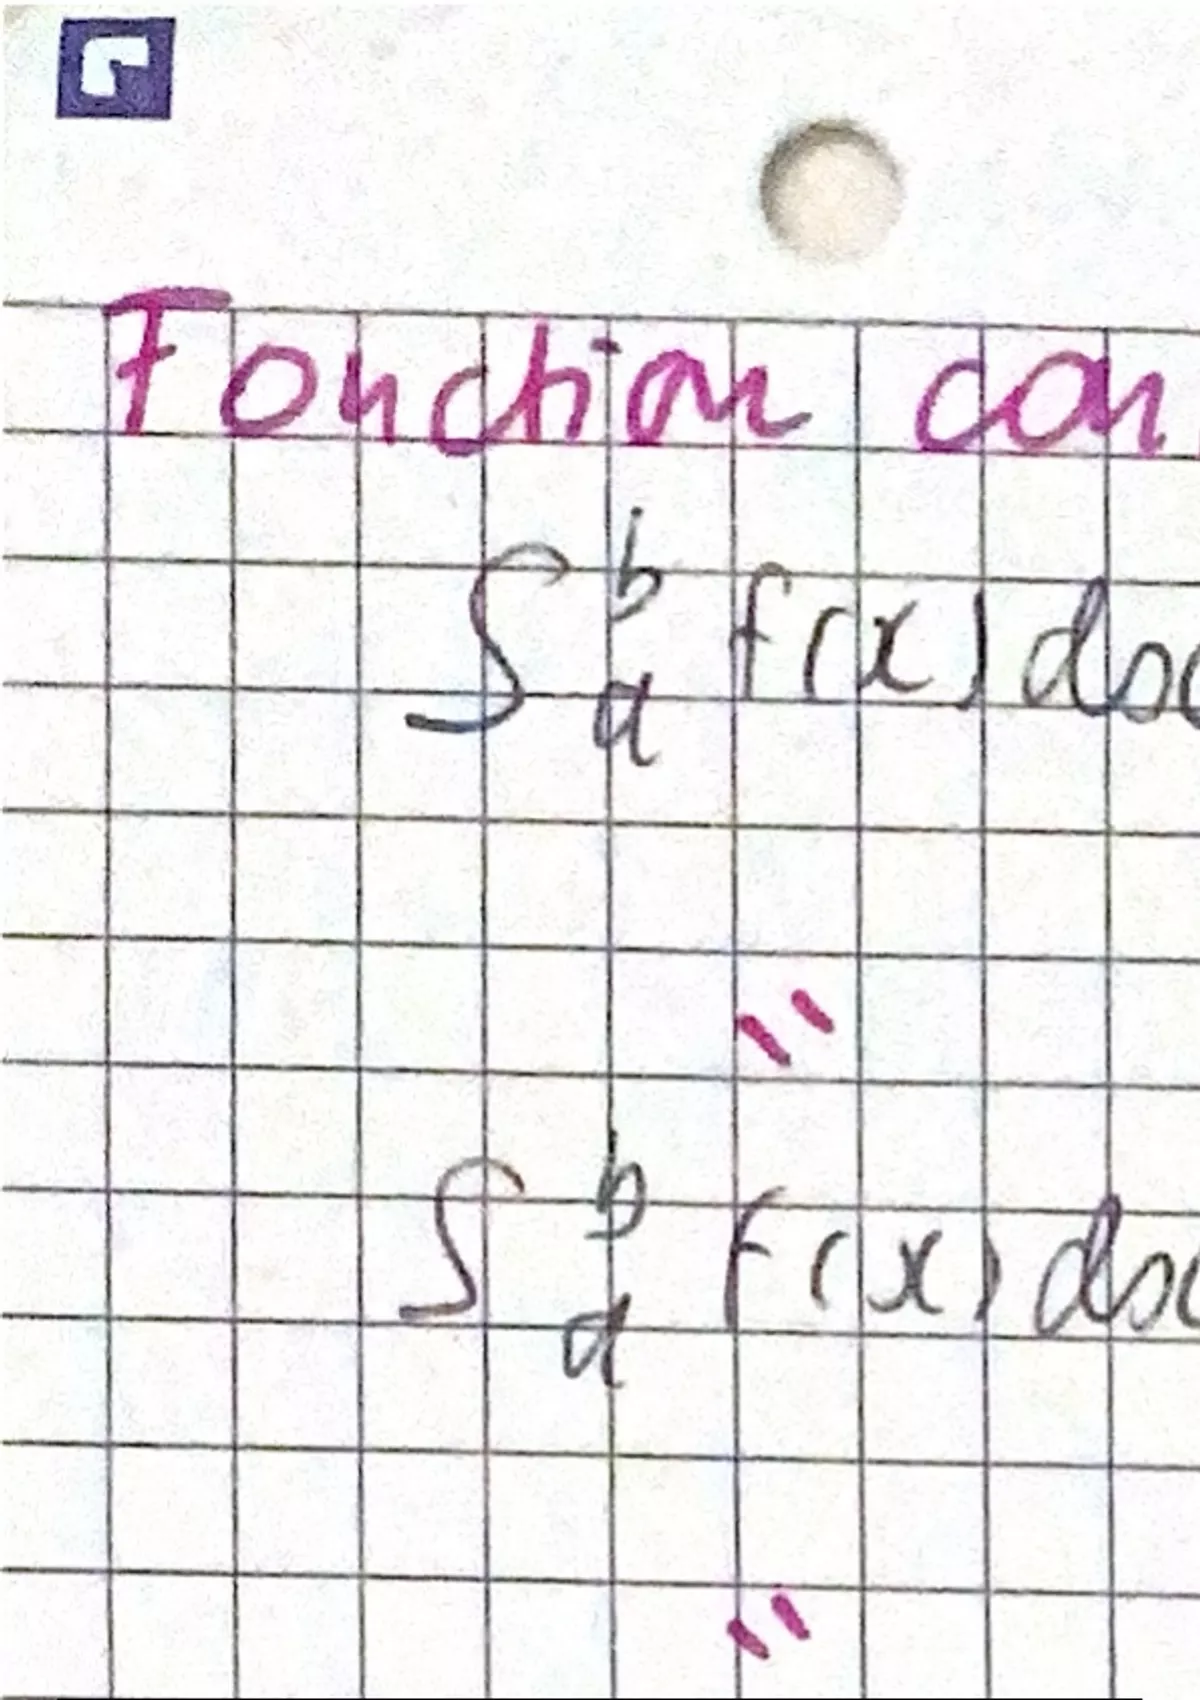 Fonction con
∫ₐᵇ f(x) dx
"
∫ₐᵇ f(x) dx
"